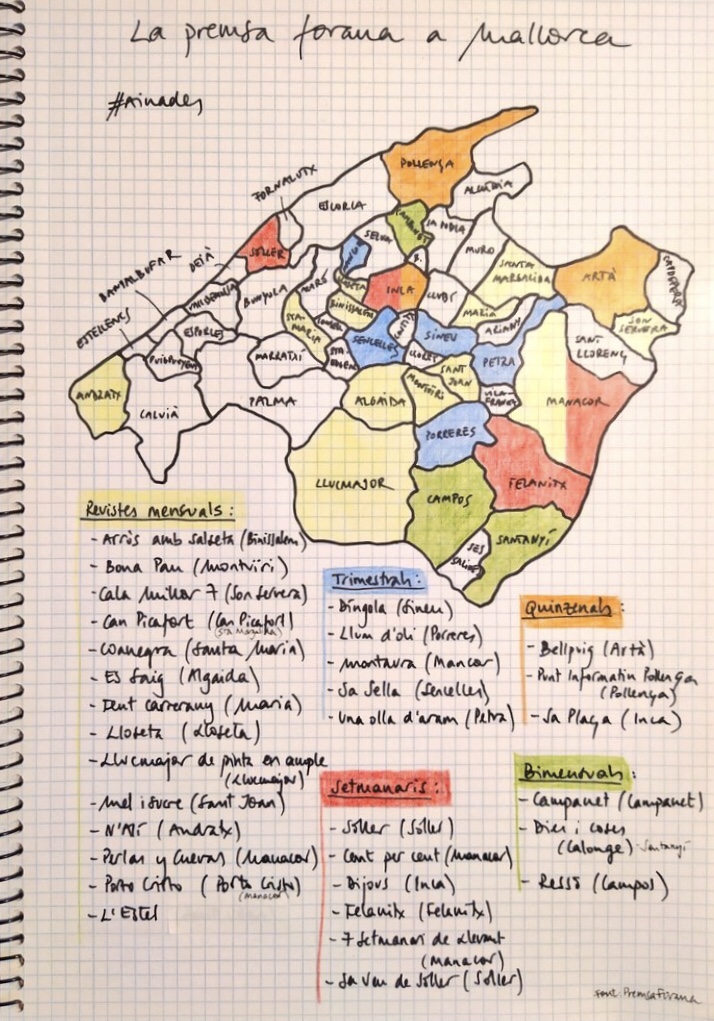 La premsa forana a Mallorca
#Ainades
POLLENÇA
ALCÚDIA
FORNALUTX
ESCORCA
CAMPANET
SA POBLA
SELVA
MURO
SOLLER
DEIÀ
BANYALBUFAR
ESTELLENCS
VALLDEMOSSA
BUNYOLA
B.
INCA
LLUBÍ
SANTA MARGALIDA
ARTÀ
CAPDEPERA
SON SERVERA
ESPORLES
PUIGPUNYENT
STA. MARIA
BINISSALEM
MARIA
ARIANY
SANT LLORENÇ
SENCELLES
SINEU
LLORET
PETRA
MARRATXI
SANT JOAN
ANDRATX
CALVIÀ
PALMA
ALGAIDA
MONTUÏRI
VILA-FRANCA
MANACOR
PORRERES
LLUCMAJOR
CAMPOS
FELANITX
SANTANYÍ
SES SALINES
Revistes mensuals:
- Arròs amb salseta (Binissalem)
- Bona Pau (Montuïri)
- Cala Millor 7 (Son Servera)
- Can Picafort (Can Picafort)
(Sta Margalida)
- Coanegra (Santa Maria)
- Es Saig (Algaida)
- Fent carrerany (Maria)
- Lloseta (Lloseta)
- Llucmajor de pinta en ample
(Llucmajor)
- Mel i sucre (Sant Joan)
- N'Alí (Andratx)
- Perlas y Cuevas (Manacor)
- Porto Cristo (Porto Cristo)
(Manacor)
- L'Estel
Trimestrals:
- Díngola (Sineu)
- Llum d'oli (Porreres)
- Montaura (Mancor)
- Sa Sella (Sencelles)
- Una olla d'aram (Petra)
Setmanaris:
- Sóller (Sóller)
- Cent per cent (Manacor)
- Dijous (Inca)
- Felanitx (Felanitx)
- 7 Setmanari de Llevant
(Manacor)
- Sa Veu de Sóller (Sóller)
Quinzenals:
- Bellpuig (Artà)
- Punt Informatiu Pollença
(Pollença)
- Sa Plaça (Inca)
Bimensuals:
- Campanet (Campanet)
- Dies i coses
(Calonge) - Santanyí
- Ressò (Campos)
Font: Premsa Forana